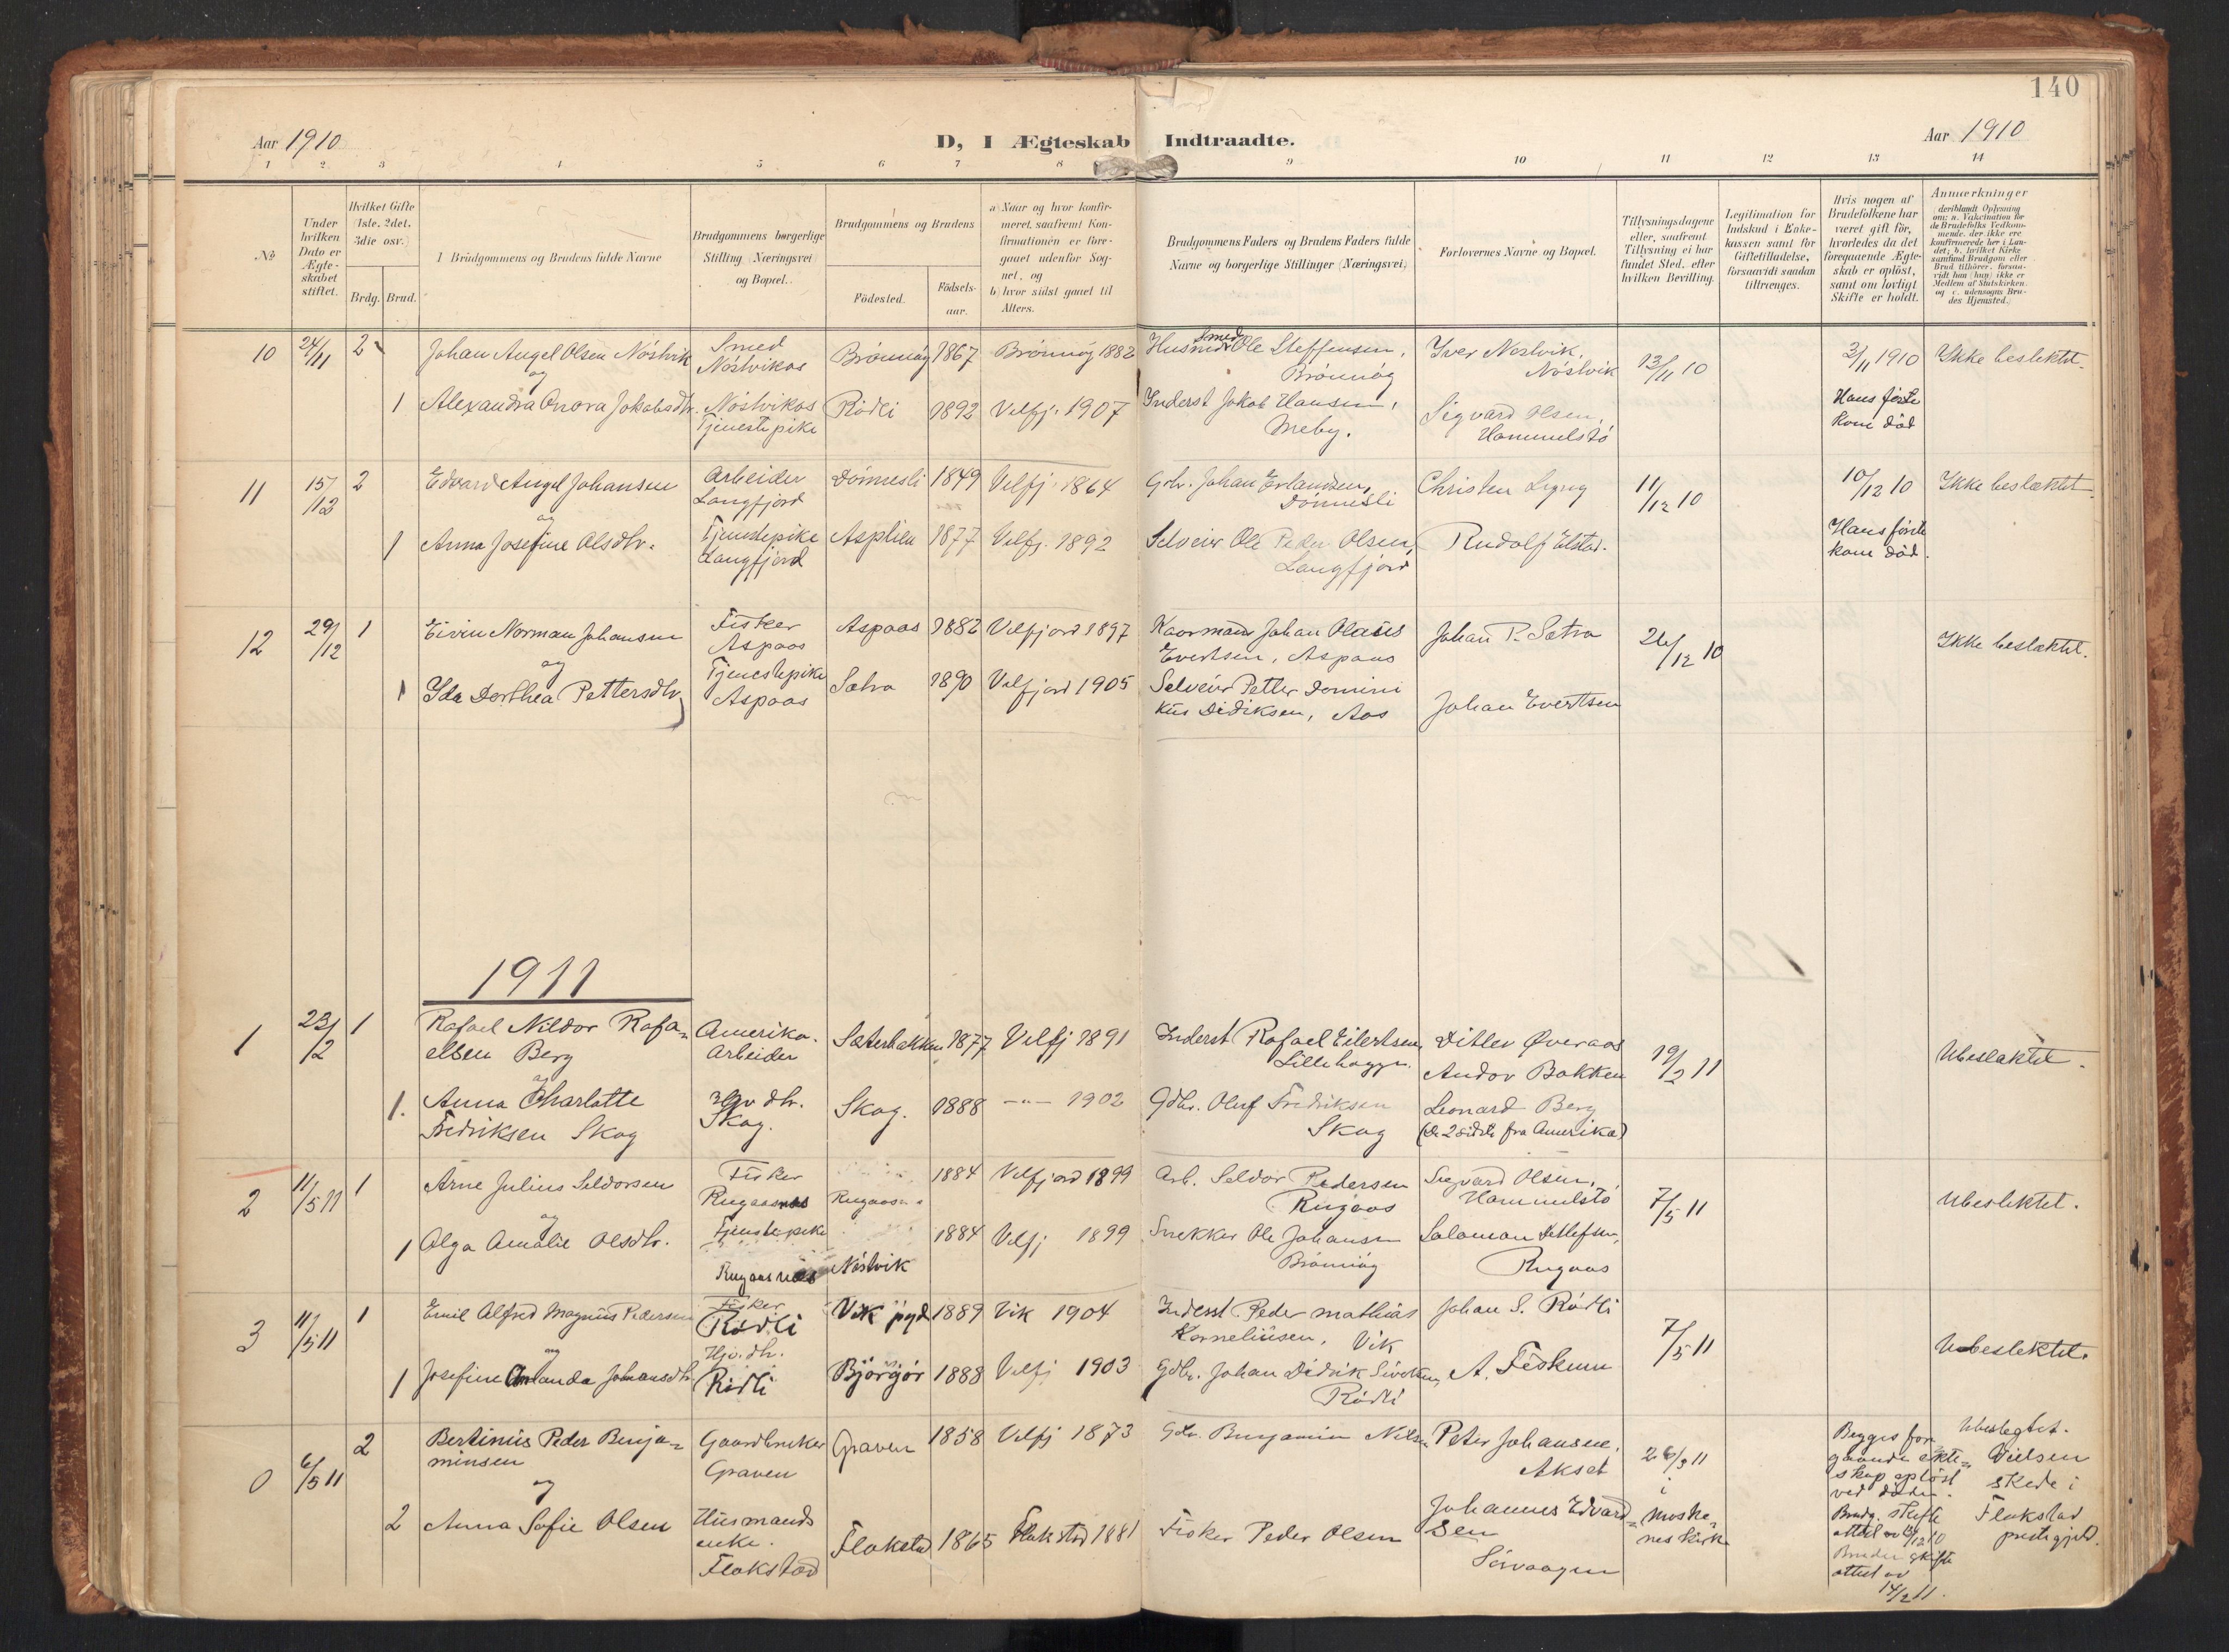 140
Aar 1910
D, I Ægteskab Indtraadte.
Aar 1910
1 2 3 4 5 6 7 8 9 10 11 12 13 14
No
Under hvilken Dato er Ægteskabet stiftet.
Hvilket Gifte (1ste, 2det, 3die osv.)
Brdg. Brud.
1 Brudgommens og Brudens fulde Navne
Brudgommens borgerlige Stilling (Næringsvei) og Bopæl.
Brudgommens og Brudens
Fødested.
Fødselsaar.
a) Naar og hvor konfirmeret, saafremt Konfirmationen er foregaaet udenfor Sognet, og
b) hvor sidst gaaet til Alters.
Brudgommens Faders og Brudens Faders fulde Navne og borgerlige Stillinger (Næringsvei)
Forlovernes Navne og Bopæl.
Tillysningsdagene eller, saafremt Tillysning ei har fundet Sted, efter hvilken Bevilling.
Legitimation for Indskud i Enkekassen samt for Giftetilladelse, forsaavidt saadan tiltrænges.
Hvis nogen af Brudefolkene har været gift før, hvorledes da det foregaaende Ægteskab er opløst, samt om lovligt Skifte er holdt.
Anmærkninger
(deriblandt Oplysning om: a. Vakcination for de Brudefolks Vedkommende, der ikke ere konfirmerede her i Landet; b. hvilket Kirkesamfund Brudgom eller Brud tilhører, forsaavidt han (hun) ikke er Medlem af Statskirken, og c. udensogns Brudes Hjemsted.)
10 24/11 2 Johan Angel Olsen Nöstvik Smed Nöstvikas Brönnöy 1867 Brönnöy 1882 Smed Ole Steffensen, Brönnöy Iver Nöstvik, Nöstvik 13/11 10 3/11 1910 Ikke beslektet.
og
1 Alexandra Onora Jakobsdtr. Nöstvikas Tjenestepike Rödli 1892 Velfj. 1907 Inderst Jakob Hansen, Meby. Sigvard Olsen, Hommelstö Hans förste Kone död
11 15/12 2 Edvard Angel Johansen Arbeider Langfjord Dönnesli 1849 Velfj. 1864 Gbr. Johan Erlandsen, Dönnesli Christen 11/12 10 10/12 10 Ikke beslæktet.
og
1 Anna Josefine Olsdtr. Tjenstepike Langfjord Asplien 1877 Velfj. 1892 Selveier Ole Peder Olsen, Langfjord Rudolf Elstad. Hans förste kone död.
12 29/12 1 Eivin Norman Johansen Fisker Aspaas Aspaas 1882 Velfjord 1897 Kaarmand Johan Olaus Evertsen, Aspaas Johan P. Sætra 26/12 10 Ikke beslæktet.
og
1 Ida Dorthea Pettersdtr. Tjenestepike Aspaas Sætra 1890 Velfjord 1905 Selveier Petter Dominikus Didiksen, Aas Johan Evertsen
1911
1 23/2 1 Rafael Nildor Rafaelsen Berg Amerika-Arbeider Sæterbakken 1877 Velfj 1891 Inderst Rafael Eilertsen, Lillehaugen Ditlev Øveraas Andor Bakken 19/2 11 Ubeslæktet.
og
1. Anna Charlotte Fredriksen Skog dtr. Skog. Skog. 1888 -"- 1902 Gdbr. Oluf Fredriksen Skog Leonard Berg (De 2 sidste fra Amerika)
2 11/5 11 1 Arne Julius Seldorsen Fisker Rugaasnes Rugaasn. 1884 Velfjord 1899 Arb. Seldor Pedersen Rugaas Sigvard Olsen, Hommelstö 7/5 11 Ubeslektet.
og
1 Olga Amalie Olsdtr. Tjenestepike Rugaasnes Nöstvik 1884 Velfj 1899 Snekker Ole Johansen Brönnöy Salamon Detlefsen, Rugaas
3 11/5 11 1 Emil Alfred Magnus Pedersen Fisker Rödli Vik pgd 1889 Vik 1904 Inderst Peder Mathias Korneliusen, Vik Johan S. Rödli 7/5 11 Ubeslektet.
og
1 Josefine Amanda Johansdtr. Hjv. dtr. Rödli Björgör 1888 Velfj 1903 Gdbr. Johan Didrik Sivertsen, Rödli A. Fiskum
0 6/5 11 2 Bertinius Peder Benjaminsen Gaardbruker Graven Graven 1858 Velfj 1873 Gdbr. Benjamin Nilsen Peter Johansen, Akset 26/3 11 i Moskenes kirke Begges forgaaende ekteskap oplöst ved döden. Brudg. skifteattest av 12/10 Ubeslegtet. Vielsen skede i Flakstad prestegjeld.
og
2 Anna Sofie Olsen Husmands enke. Flakstad Flakstad 1865 Flakstad 1881 Fisker Peder Olsen Johannes Edvardsen Sörvaagen Bruden skifteattest av 14/2 11.